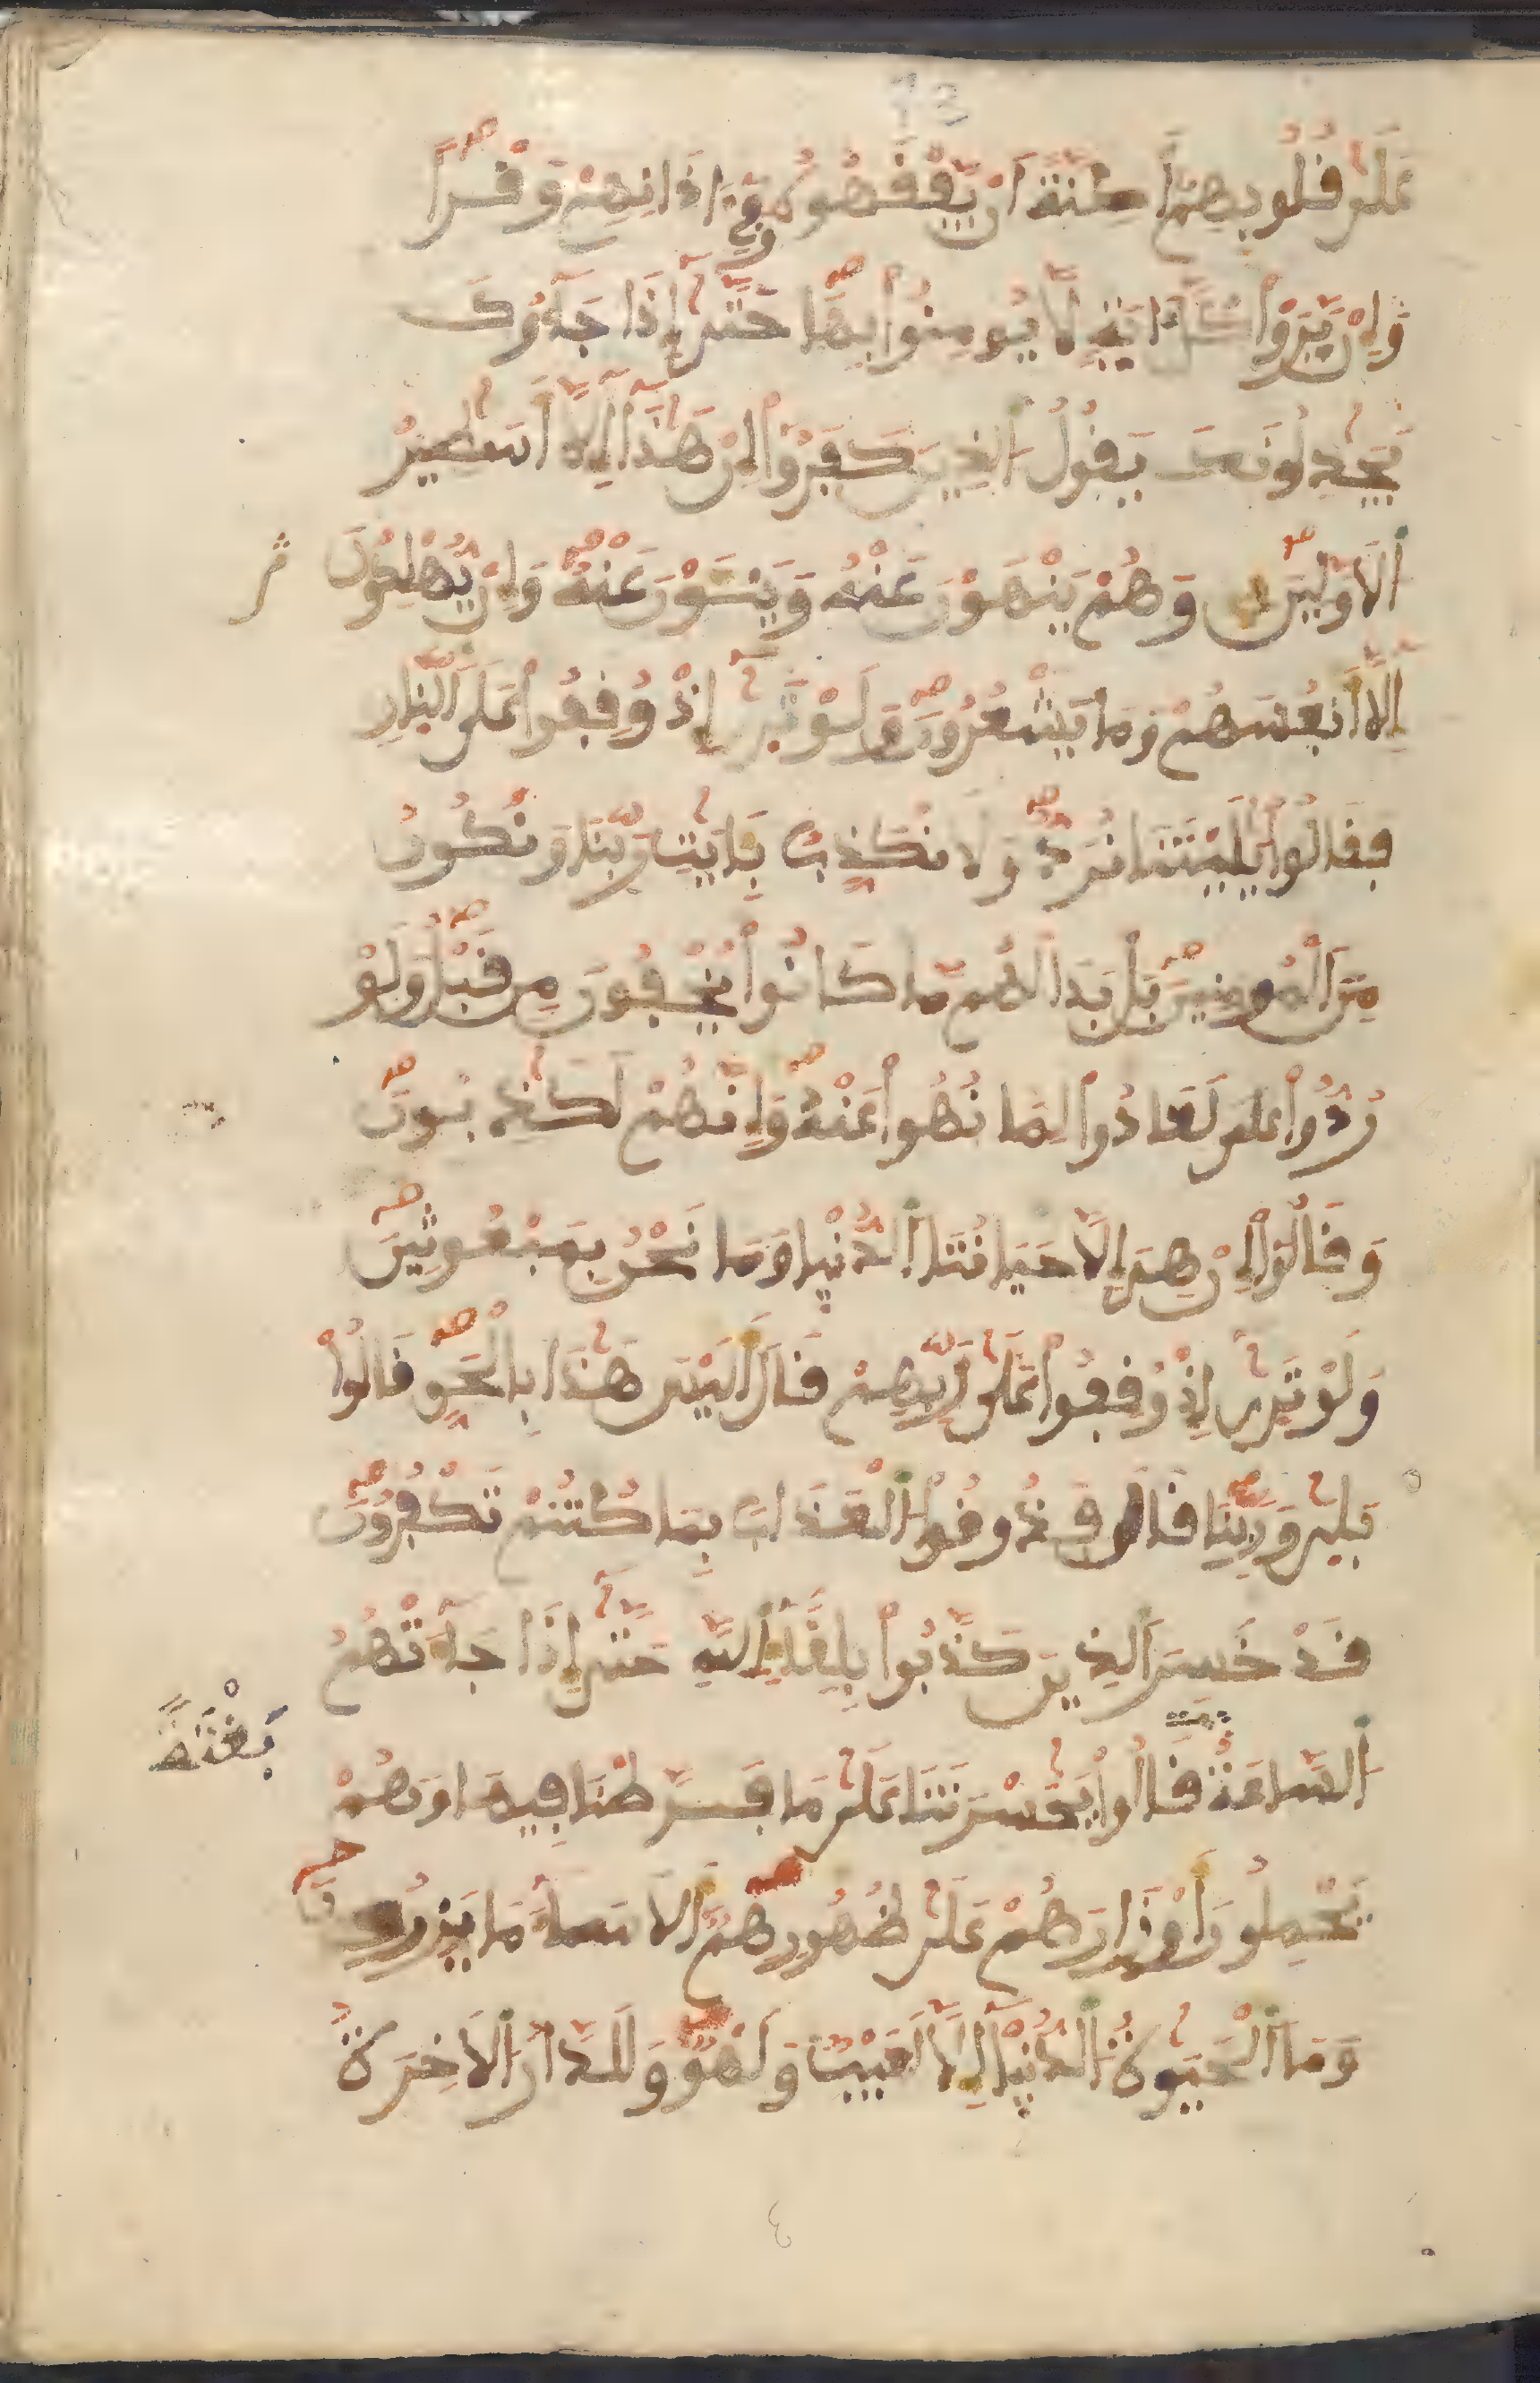 13
عَلَىٰ قُلُوبِهِمُۥ أَكِنَّةً أَنْ يَّفْقَهُوهُ وَفِےٓ ءَاذَانِهِمْ وَقْراً
وَإِنْ يَّرَوْا۟ كُلَّ ءَايَةٍ لَّا يُومِنُوا۟ بِهَا حَتَّىٰٓ إِذَا جَآءُوكَ
يُجَٰدِلُونَكَ يَقُولُ اُ۬لذِينَ كَفَرُوٓا۟ إِنْ هَٰذَآ إِلَّآ أَسَٰطِيرُ
اُ۬لَاوَّلِينَ وَهُمْ يَنْهَوْنَ عَنْهُ وَيَنْـَٔوْنَ عَنْهُ وَإِنْ يُّهْلِكُونَ
إِلَّآ أَنفُسَهُمْ وَمَا يَشْعُرُونَ وَلَوْ تَرَىٰٓ إِذْ وُقِفُوا۟ عَلَى اَ۬لنَّارِ
فَقَالُوا۟ يَٰلَيْتَنَا نُرَدُّ وَلَا نُكَذِّبُ بِـَٔايَٰتِ رَبِّنَا وَنَكُونُ
مِنَ اَ۬لْمُومِنِينَ بَلْ بَدَا لَهُم مَّا كَانُوا۟ يُخْفُونَ مِن قَبْلُ وَلَوْ
رُدُّوا۟ على لَعَادُوا۟ لِمَا نُهُوا۟ عَنْهُ وَإِنَّهُمْ لَكَٰذِبُونَ
وَقَالُوٓا۟ إِنْ هِىَ إِلَّا حَيَاتُنَا اَ۬لدُّنْيَا وَمَا نَحْنُ بِمَبْعُوثِينَ
وَلَوْ تَرَىٰٓ إِذْ وُقِفُوا۟ عَلَىٰ رَبِّهِمْ قَالَ أَلَيْسَ هَٰذَا بِالْحَقِّ قَالُوا۟
بَلَىٰ وَرَبِّنَا قَالَ فَذُوقُوا۟ اُ۬لْعَذَابَ بِمَا كُنتُمْ تَكْفُرُونَ
قَدْ خَسِرَ اَ۬لذِينَ كَذَّبُوا۟ بِلِقَآءِ اِ۬للَّهِ حَتَّىٰٓ إِذَا جَآءَتْهُمُ
بَغْتَةً
اُ۬لسَّاعَةُ قَالُوا۟ يَٰحَسْرَتَنَا عَلَىٰ مَا فَرَّطْنَا فِيهَا وَهُمْ
يَحْمِلُونَ أَوْزَارَهُمْ عَلَىٰ ظُهُورِهِمْ أَلَا سَآءَ مَا يَزِرُونَ
وَمَا اَ۬لْحَيَوٰةُ اُ۬لدُّنْيَآ إِلَّا لَعِبٌ وَلَهْوٌ وَلَلدَّارُ اُ۬لَاخِرَةُ
٤